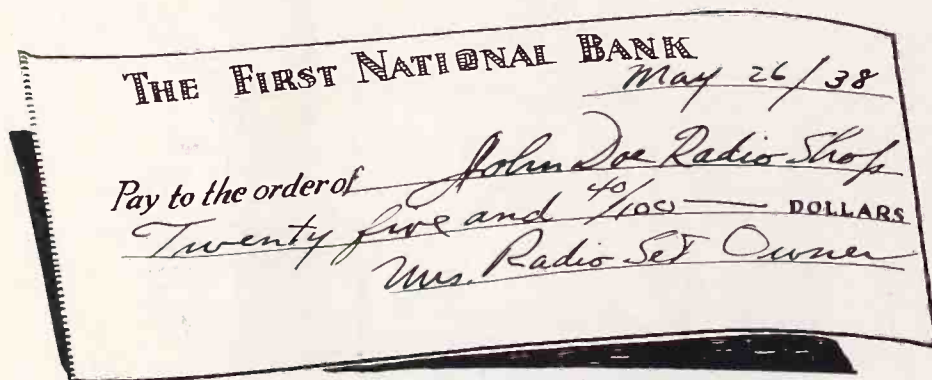 THE FIRST NATIONAL BANK
May 26/38
Pay to the order of John Doe Radio Shop
Twenty five and 40/100 — DOLLARS
Mrs. Radio Set Owner